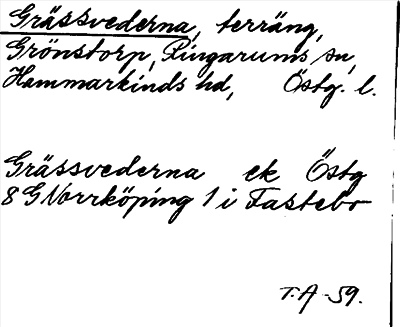 Grässvederna, terräng,
Grönstorp, Ringarums sn,
Hammarkinds hd, Östg. l.
Grässvederna ek Östg
8 G Norrköping 1 i Fastebo
T.A -59.